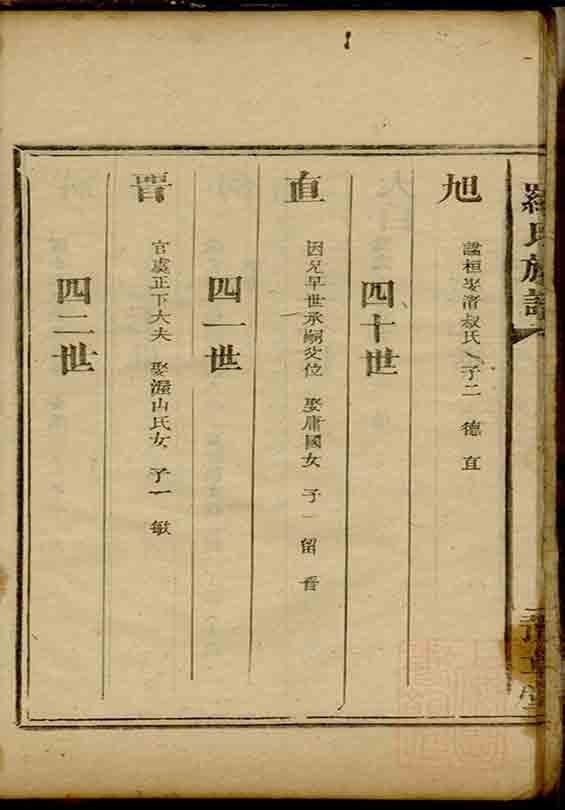 羅氏族譜
旭
諡桓娶濆叔氏 子二 德 直
四十世
直
因兄早世承嗣父位 娶庸國女 子一 留 香
四一世
官虞正下大夫 娶潛山氏女 子一 敏
四二世